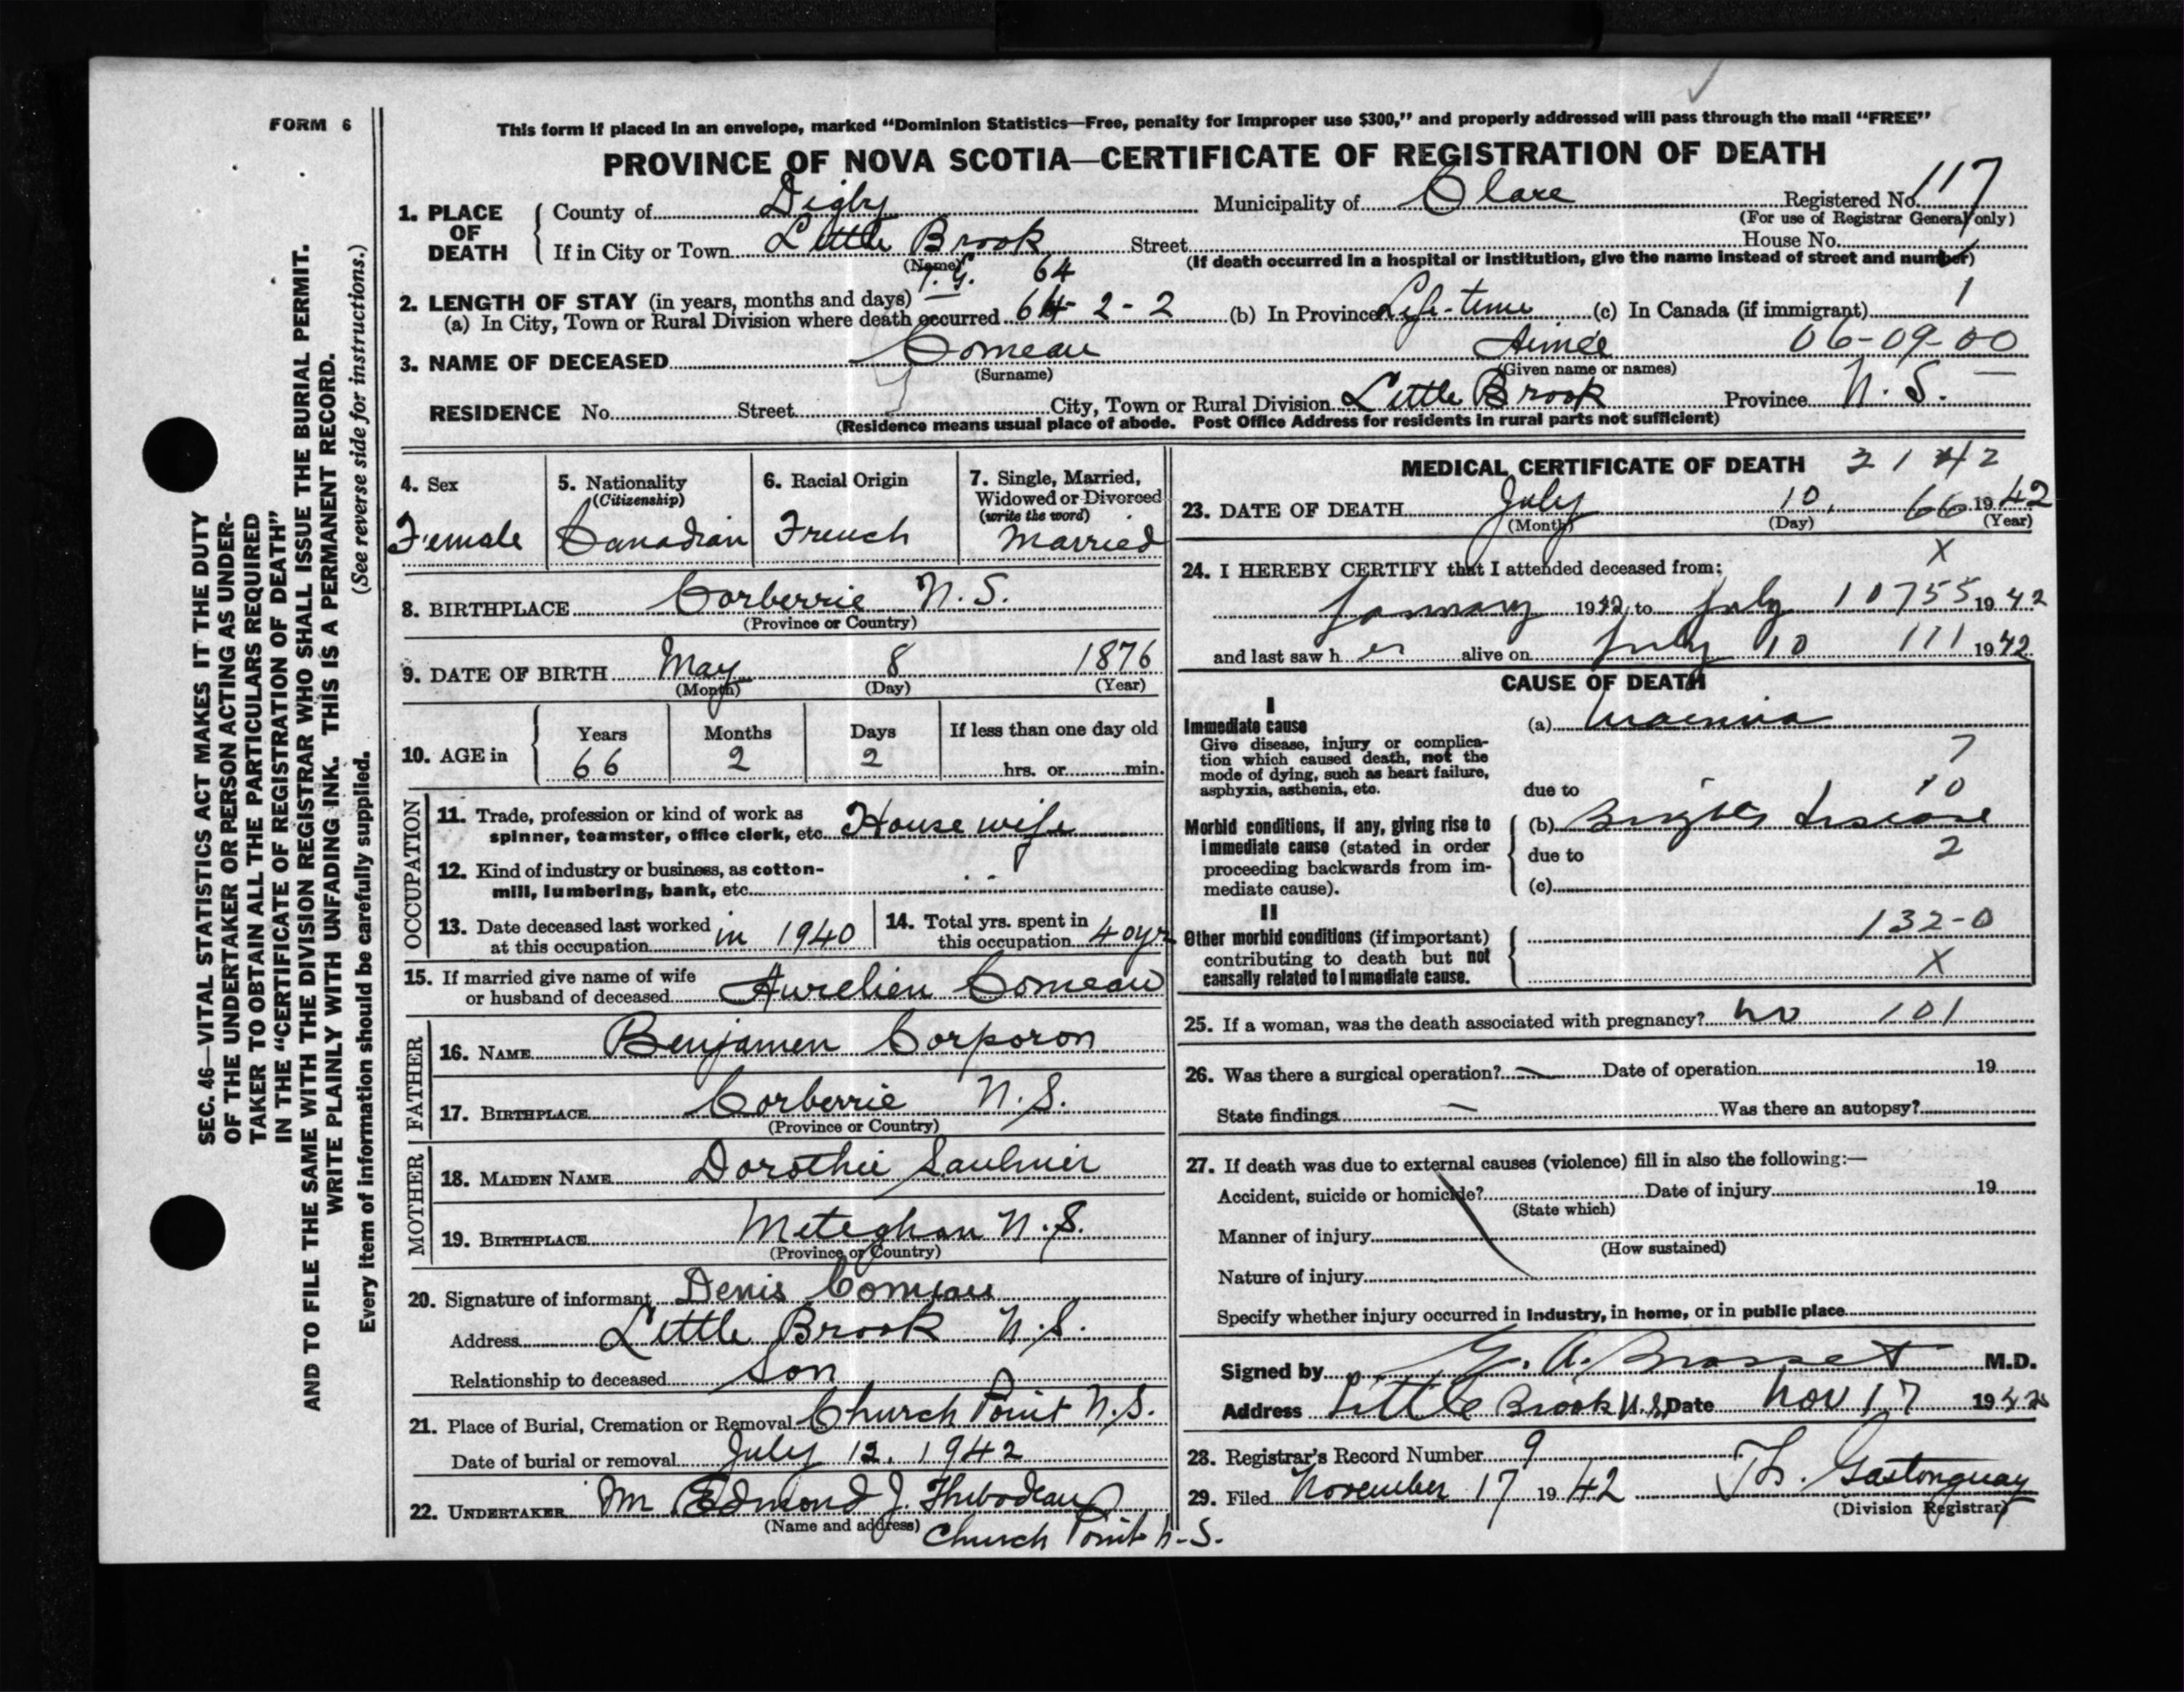 FORM 6
This form if placed in an envelope, marked “Dominion Statistics—Free, penalty for improper use $300,” and properly addressed will pass through the mail “FREE”
PROVINCE OF NOVA SCOTIA—CERTIFICATE OF REGISTRATION OF DEATH
1. PLACE OF DEATH
County of Digby Municipality of Clare Registered No. 117
(For use of Registrar General only)
If in City or Town Little Brook Street House No.
(Name) (If death occurred in a hospital or institution, give the name instead of street and number)
T. G. 64 1
2. LENGTH OF STAY (in years, months and days)
(a) In City, Town or Rural Division where death occurred 64-2-2 (b) In Province Life-time (c) In Canada (if immigrant) 1
3. NAME OF DECEASED Comeau Aimée 06-09-00
(Surname) (Given name or names)
RESIDENCE No. Street City, Town or Rural Division Little Brook Province N. S.
(Residence means usual place of abode. Post Office Address for residents in rural parts not sufficient)
4. Sex
Female
5. Nationality
(Citizenship)
Canadian
6. Racial Origin
French
7. Single, Married,
Widowed or Divorced
(write the word)
Married
8. BIRTHPLACE Corberrie N. S.
(Province or Country)
9. DATE OF BIRTH May 8 1876
(Month) (Day) (Year)
10. AGE in
Years Months Days If less than one day old
66 2 2 hrs. or min.
OCCUPATION
11. Trade, profession or kind of work as
spinner, teamster, office clerk, etc. House wife
12. Kind of industry or business, as cotton-
mill, lumbering, bank, etc.
13. Date deceased last worked
at this occupation in 1940
14. Total yrs. spent in
this occupation 40 yrs
15. If married give name of wife
or husband of deceased Aurelien Comeau
FATHER
16. NAME Benjamen Corporon
17. BIRTHPLACE Corberrie N. S.
(Province or Country)
MOTHER
18. MAIDEN NAME Dorothie Saulnier
19. BIRTHPLACE Meteghan N. S.
(Province or Country)
20. Signature of informant Denis Comeau
Address Little Brook N. S.
Relationship to deceased Son
21. Place of Burial, Cremation or Removal Church Point N. S.
Date of burial or removal July 12, 1942
22. UNDERTAKER Mr Edmond J. Thibodeau
(Name and address) Church Point N. S.
MEDICAL CERTIFICATE OF DEATH 2142
23. DATE OF DEATH July 10, 66 1942
(Month) (Day) (Year)
X
24. I HEREBY CERTIFY that I attended deceased from:
January 1942, to July 10 755 1942
and last saw her alive on July 10 111 1942
CAUSE OF DEATH
I
Immediate cause
Give disease, injury or complica-
tion which caused death, not the
mode of dying, such as heart failure,
asphyxia, asthenia, etc.
(a) Uraemia
7
due to 10
Morbid conditions, if any, giving rise to
immediate cause (stated in order
proceeding backwards from im-
mediate cause).
(b) Brights Disease
due to 2
(c)
II
Other morbid conditions (if important)
contributing to death but not
causally related to immediate cause.
132-0
X
25. If a woman, was the death associated with pregnancy? no 101
26. Was there a surgical operation? — Date of operation 19
State findings — Was there an autopsy?
27. If death was due to external causes (violence) fill in also the following:—
Accident, suicide or homicide? Date of injury 19
(State which)
Manner of injury
(How sustained)
Nature of injury
Specify whether injury occurred in industry, in home, or in public place
Signed by G. A. Brasset M.D.
Address Little Brook N.S. Date Nov 17 1942
28. Registrar's Record Number 9
29. Filed November 17 1942 Th. Gastonguay
(Division Registrar)
SEC. 46—VITAL STATISTICS ACT MAKES IT THE DUTY
OF THE UNDERTAKER OR PERSON ACTING AS UNDER-
TAKER TO OBTAIN ALL THE PARTICULARS REQUIRED
IN THE “CERTIFICATE OF REGISTRATION OF DEATH”
AND TO FILE THE SAME WITH THE DIVISION REGISTRAR WHO SHALL ISSUE THE BURIAL PERMIT.
WRITE PLAINLY WITH UNFADING INK. THIS IS A PERMANENT RECORD.
Every item of information should be carefully supplied. (See reverse side for instructions.)